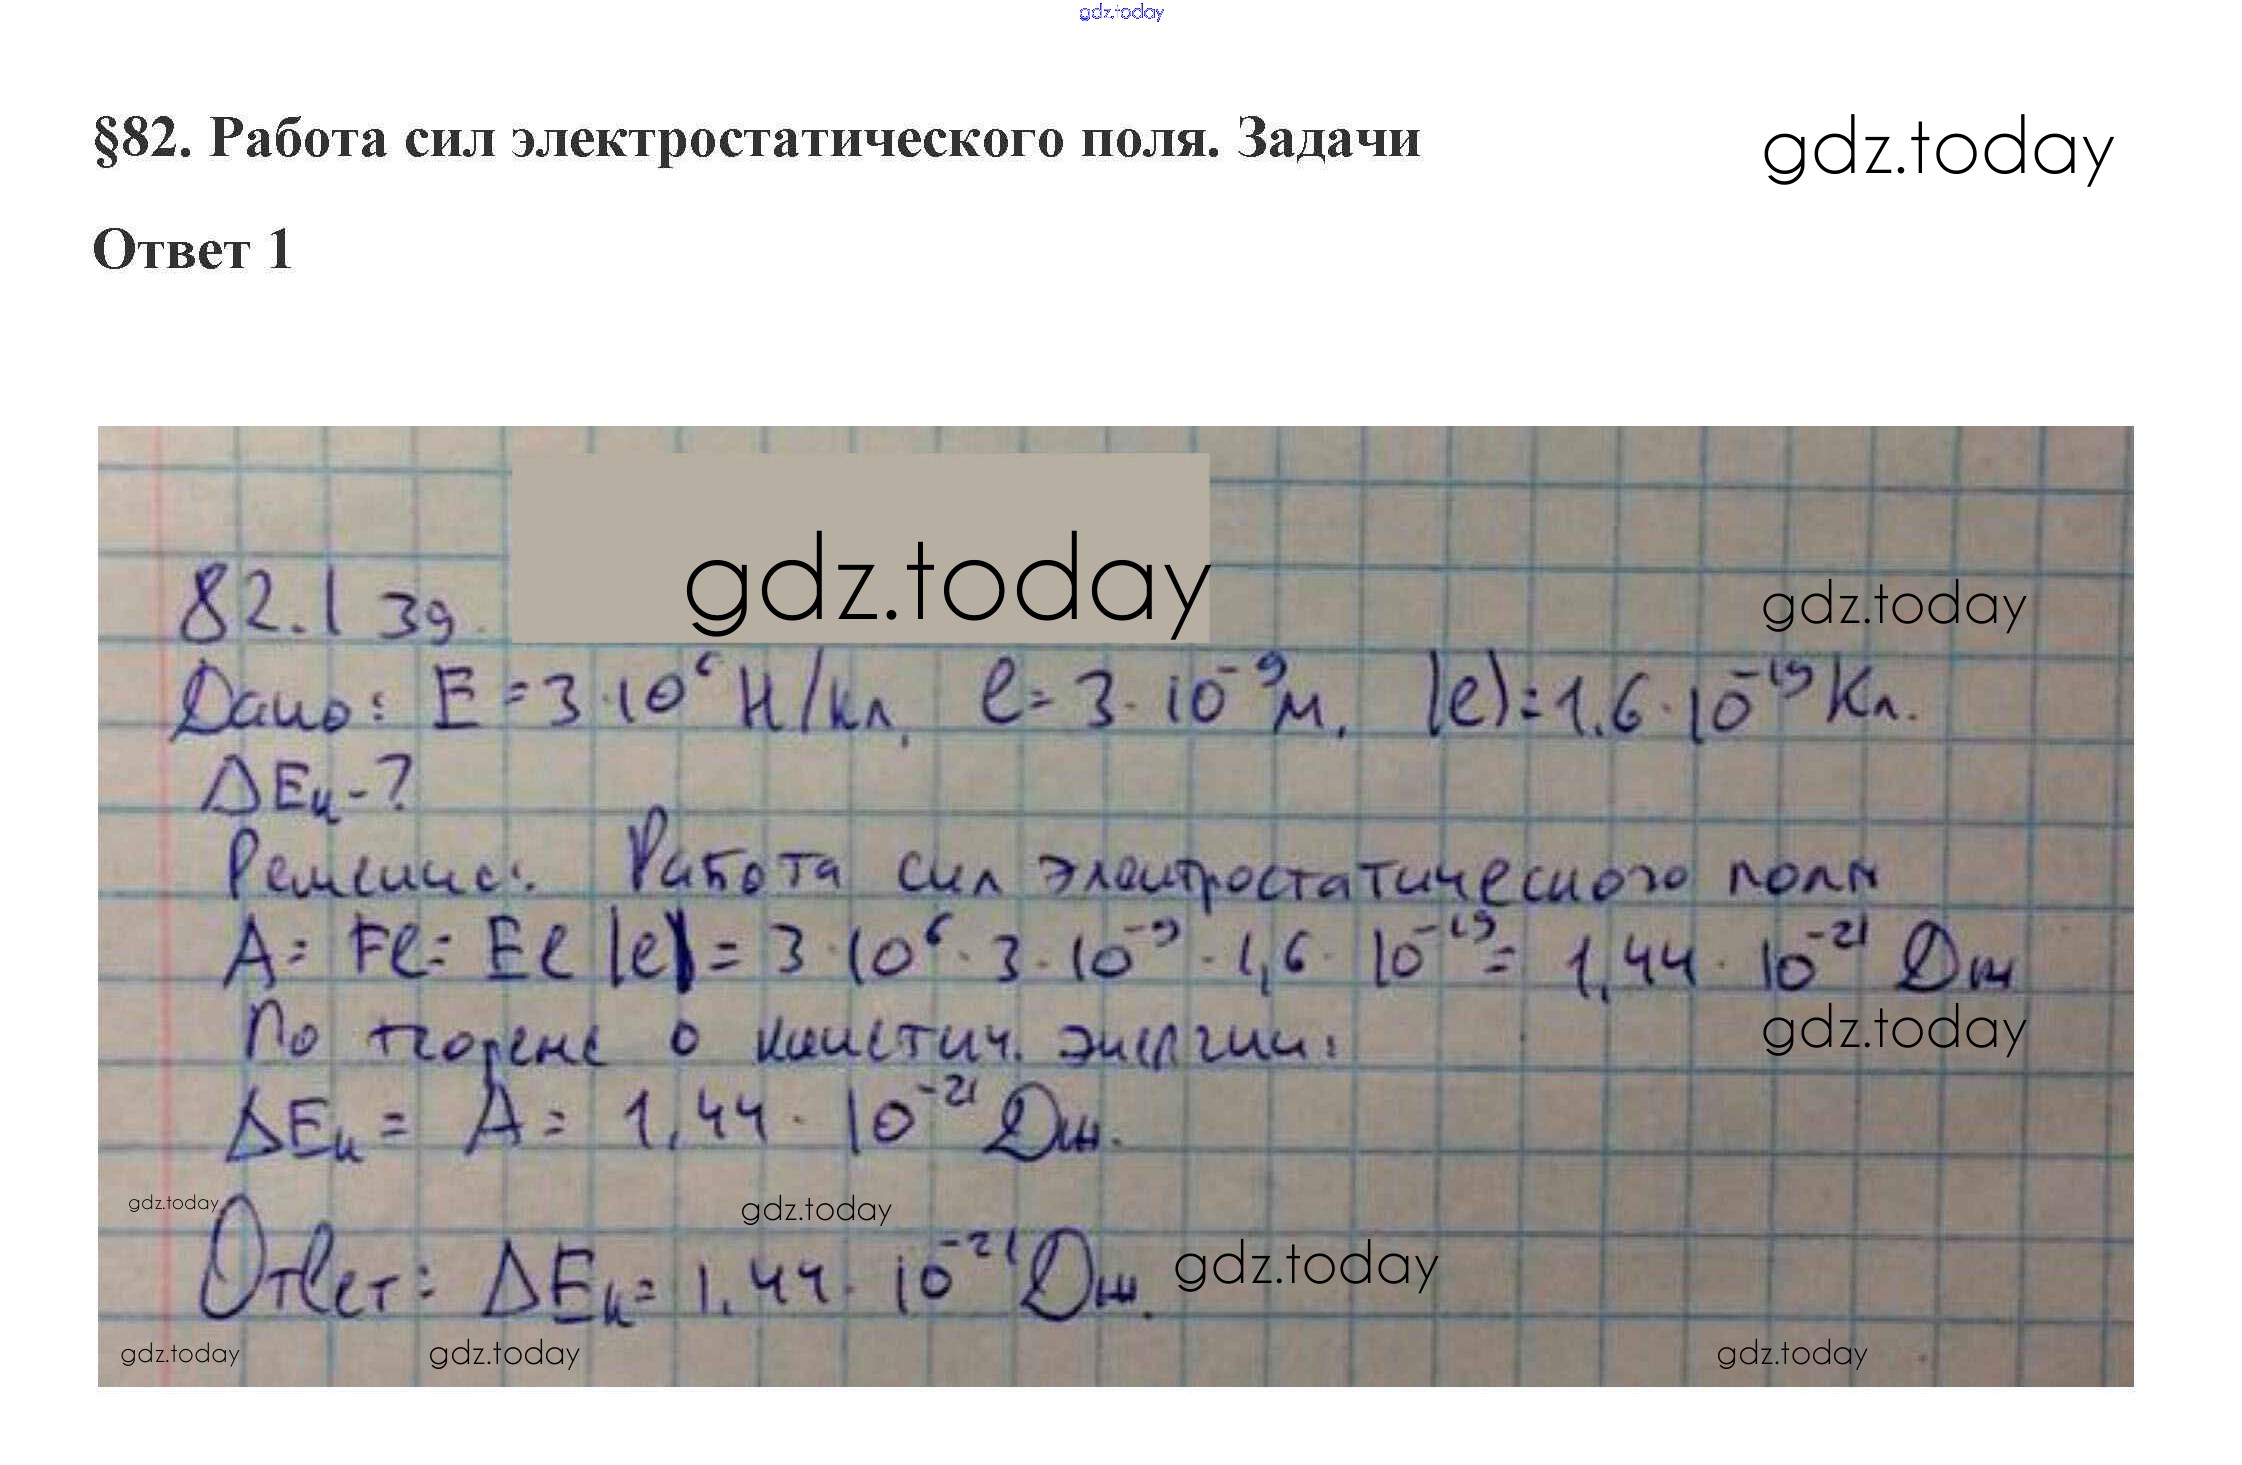 gdz.today
§82. Работа сил электростатического поля. Задачи
gdz.today
Ответ 1
gdz.today
82.1 зд.
gdz.today
Дано: E = 3·10⁶ Н/Кл, l = 3·10⁻⁹ м, |e| = 1.6·10⁻¹⁹ Кл.
ΔEк - ?
Решение: Работа сил электростатического поля
A = Fl = El|e| = 3·10⁶·3·10⁻⁹·1,6·10⁻¹⁹ = 1,44·10⁻²¹ Дж
По теореме о кинетич. энергии:
gdz.today
ΔEк = A = 1,44·10⁻²¹ Дж.
gdz.today
gdz.today
Ответ: ΔEк = 1,44·10⁻²¹ Дж.
gdz.today
gdz.today
gdz.today
gdz.today